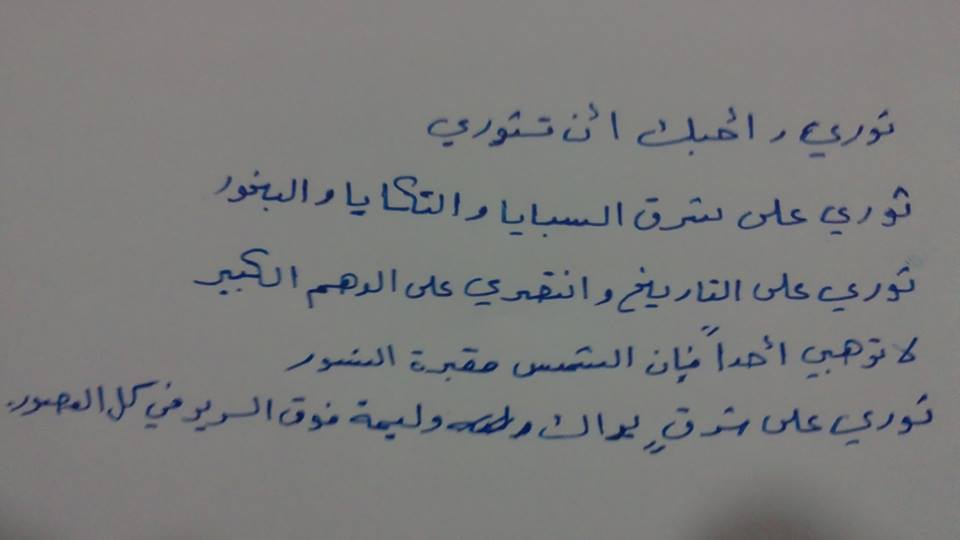 ثوري، أحبك أن تثوري
ثوري على شرق السبايا والتكايا والبخور
ثوري على التاريخ وانتصري على الوهم الكبير
لا ترهبي أحداً فإن الشمس مقبرة النسور
ثوري على شرقٍ يراك وليمة فوق السرير في كل العصور.